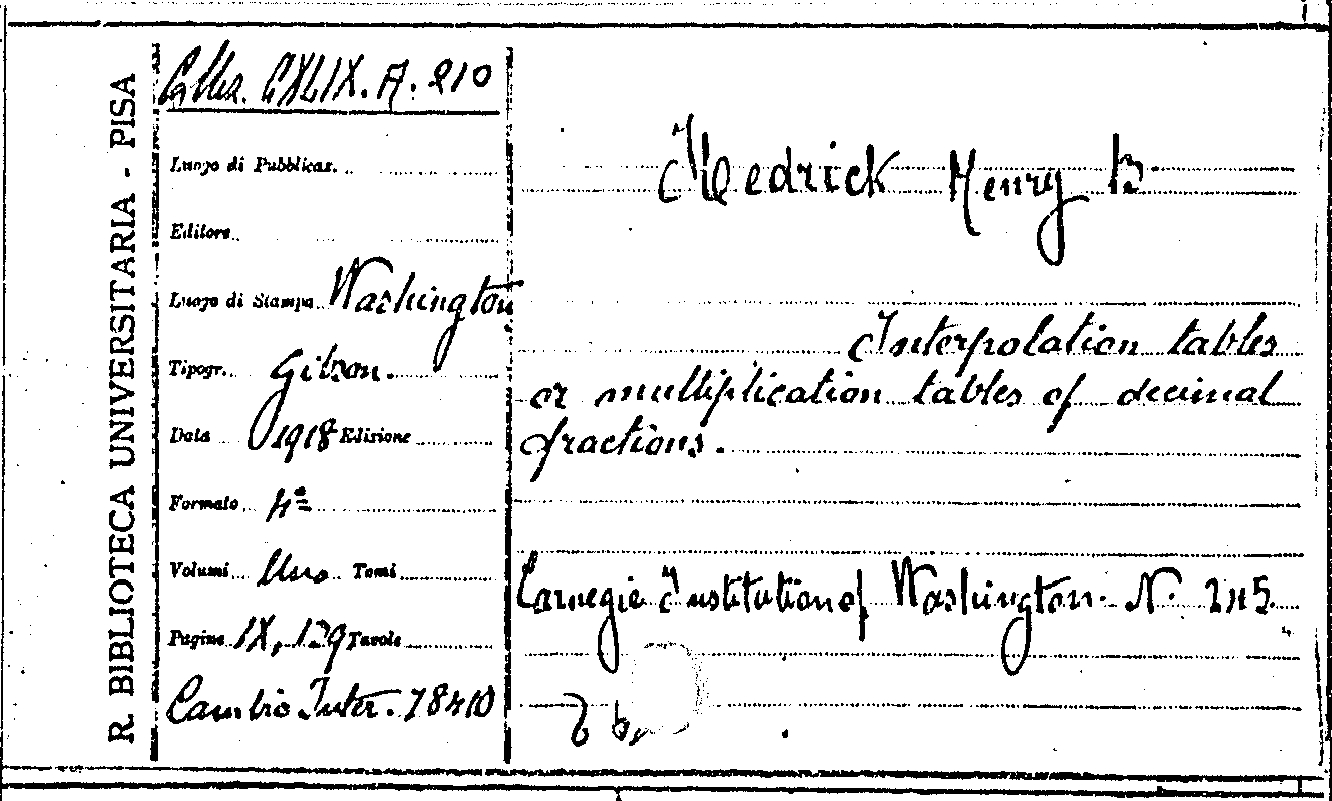 R. BIBLIOTECA UNIVERSITARIA - PISA
Colloz. CXLIX. A. 210
Luogo di Pubblicaz.
Editore
Luogo di Stampa Washington
Tipogr. Gibson.
Data 1918 Edizione
Formato 4º
Volumi Uno Tomi
Pagine IX, 129 Tavole
Cambio Inter. 78410
Hedrick Henry B.
Interpolation tables
or multiplication tables of decimal
fractions.
Carnegie Institution of Washington. N. 245.